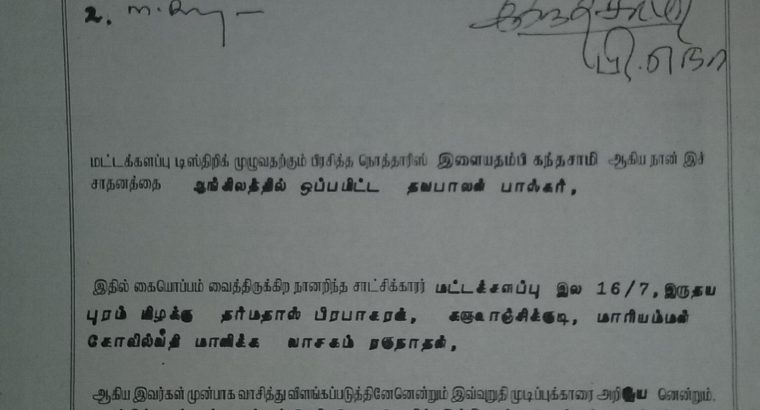 2.
பி.எநோ
மட்டக்களப்பு டிஸ்திறிக் முழுவதற்கும் பிரசித்த நொத்தாரிஸ் இளையதம்பி கந்தசாமி ஆகிய நான் இச்
சாதனத்தை ஆங்கிலத்தில் ஒப்பமிட்ட தவபாலன் பாஸ்கர்,
இதில் கையொப்பம் வைத்திருக்கிற நானறிந்த சாட்சிக்காரர் மட்டக்களப்பு இல 16/7, இருதய
புரம் கிழக்கு தர்மதாஸ் பிரபாகரன், களுவாஞ்சிக்குடி, மாரியம்மன்
கோவில்வீதி மாணிக்க வாசகம் ரகுநாதன்,
ஆகிய இவர்கள் முன்பாக வாசித்து விளங்கப்படுத்தினேனென்றும் இவ்வுறுதி முடிப்புக்காரை அறிவேனென்றும்,